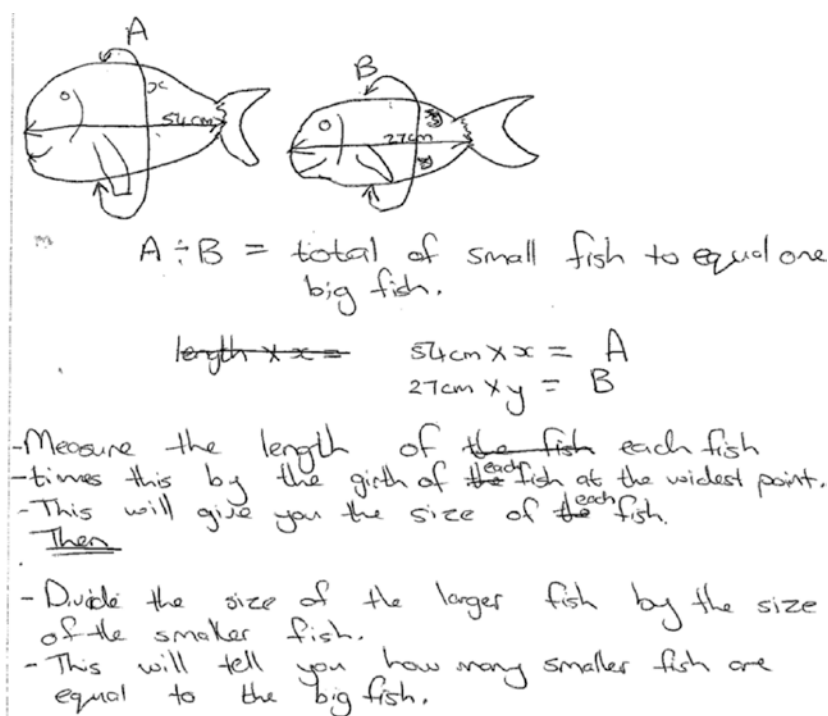 A
x
54cm
B
y
27cm
A ÷ B = total of small fish to equal one
big fish.
length × x =
54cm × x = A
27cm × y = B
- Measure the length of the fish each fish
- times this by the girth of the each fish at the widest point.
- This will give you the size of the each fish.
Then
- Divide the size of the larger fish by the size
of the smaller fish.
- This will tell you how many smaller fish are
equal to the big fish.